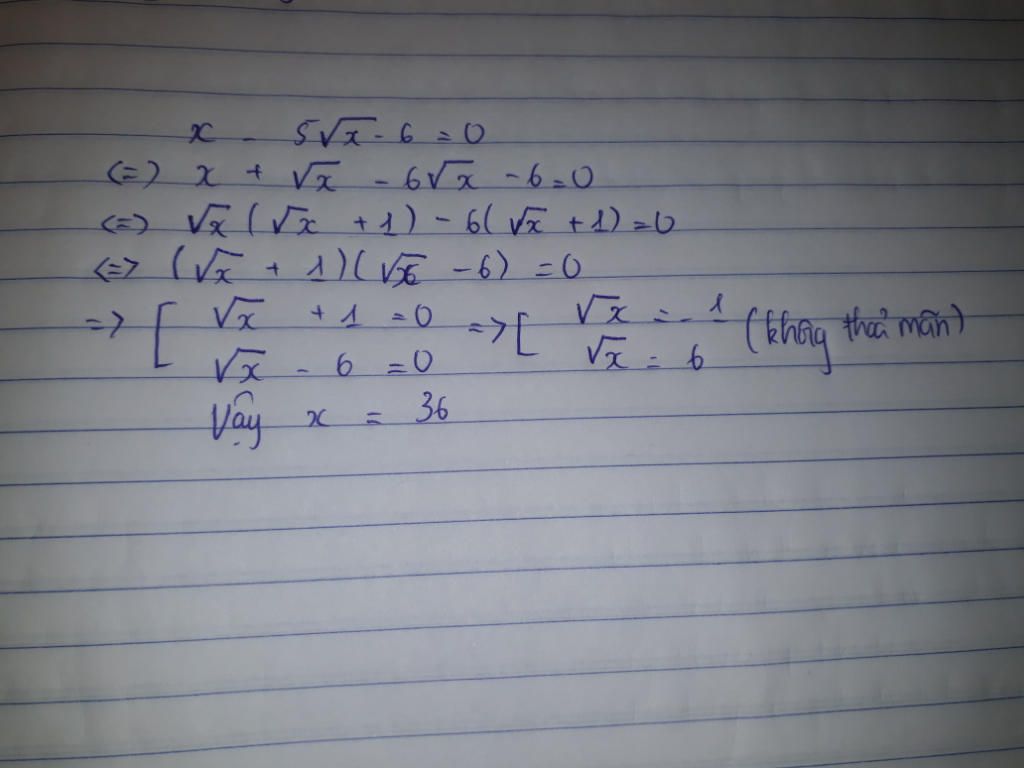 x - 5√x - 6 = 0
<=> x + √x - 6√x - 6 = 0
<=> √x (√x + 1) - 6(√x + 1) = 0
<=> (√x + 1)(√x - 6) = 0
=> [ √x + 1 = 0 => [ √x = -1 (không thoả mãn)
√x - 6 = 0 √x = 6
Vậy x = 36